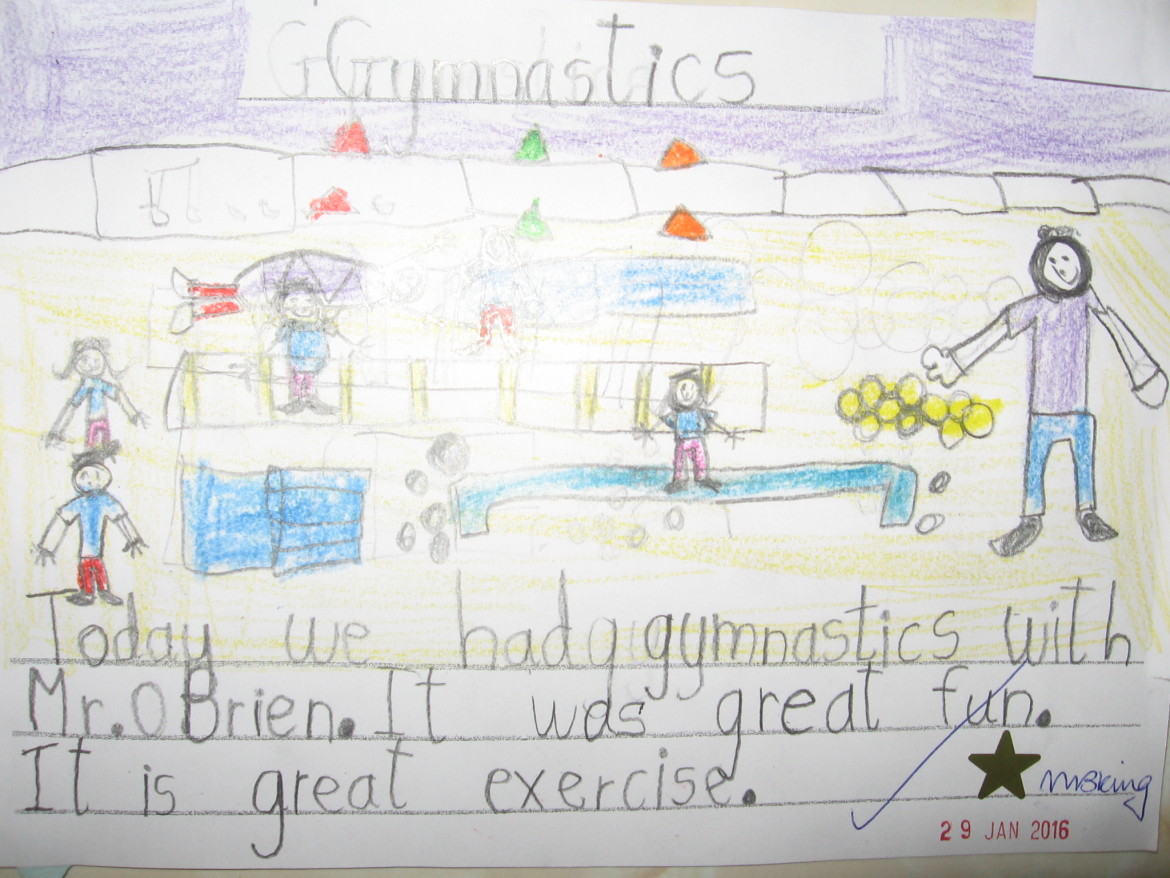 Gymnastics
Today we had gymnastics with
Mr. O Brien. It was great fun.
It is great exercise.
29 JAN 2016